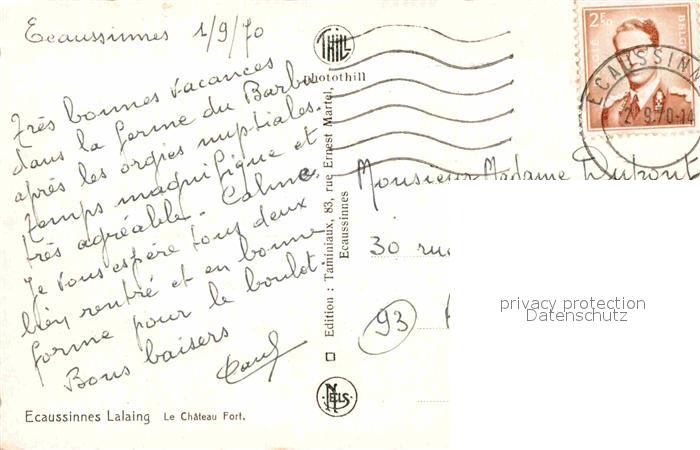 Ecaussinnes 1/9/70
Très bonnes vacances
dans la ferme du Barbu
après les orgies nuptiales.
Temps magnifique et
très agréable. Calme.
Je vous espère tous deux
bien rentré et en bonne
forme pour le boulot.
Bons baisers
Ecaussinnes Lalaing Le Château Fort.
THILL
Photothill
Edition : Taminiaux, 83, rue Ernest Martel,
Ecaussinnes
NELS
2F50
BELGIE
ECAUSSINN
2-9.70-14
Monsieur Madame Dupont
30 rue
93
privacy protection
Datenschutz